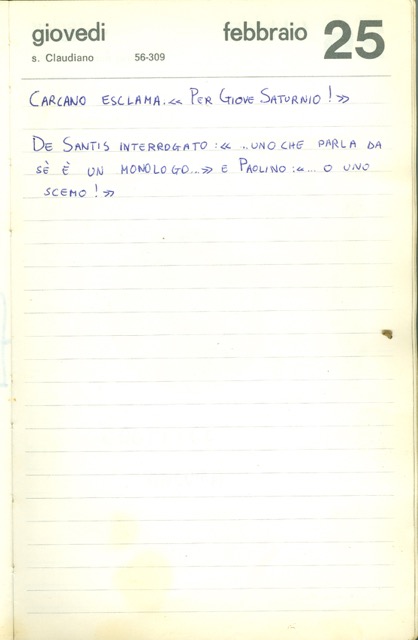 giovedi febbraio 25
s. Claudiano 56-309
CARCANO ESCLAMA: « PER GIOVE SATURNIO ! »
DE SANTIS INTERROGATO : « ...UNO CHE PARLA DA
SÈ È UN MONOLOGO...» E PAOLINO : «... O UNO
SCEMO ! »